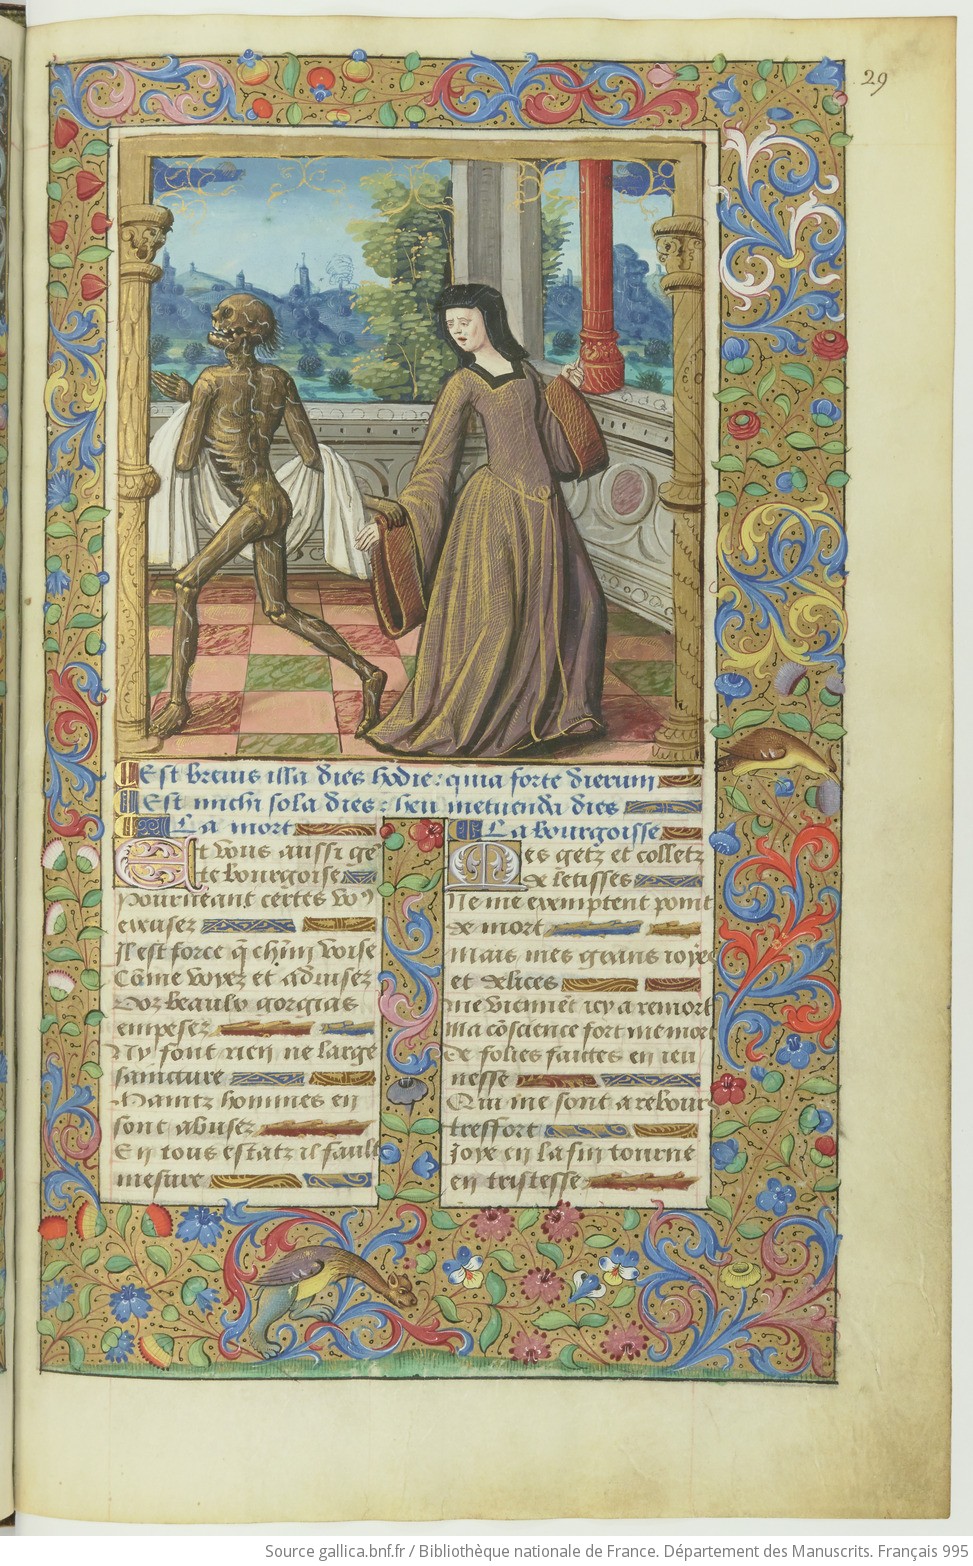 29
Est brevis illa dies hodie: quia forte dierum
Est michi sola dies: heu metuenda dies
La mort
Et vous aussi gẽ
te bourgoise
Pourneant certes voꝰ
excusez
Il est force q̃ chũn voise
Cõme voyez et advisez
Voz beaulx gorgias
empesez
Ny font rien ne large
saincture
Maintz hommes en
sont abusez
En tous estatz il fault
mesure
La bourgoisse
Mes getz et colletz
de letisses
Ne me exemptent point
de mort
Mais mes grans ioyes
et delices
me viennẽt icy a remort
Ma cõscience fort me mort
De folies faictes en ieu
nesse
Qui me sont a rebours
tresfort
Joye en la fin tourne
en tristesse
Source gallica.bnf.fr / Bibliothèque nationale de France. Département des Manuscrits. Français 995